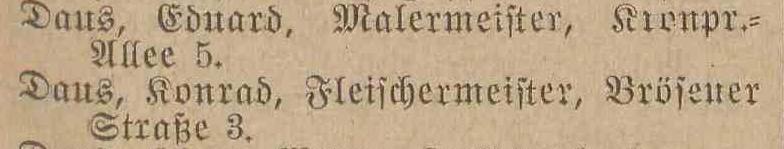 Daus, Eduard, Malermeister, Kronpr.=
Allee 5.
Daus, Konrad, Fleischermeister, Brösener
Straße 3.